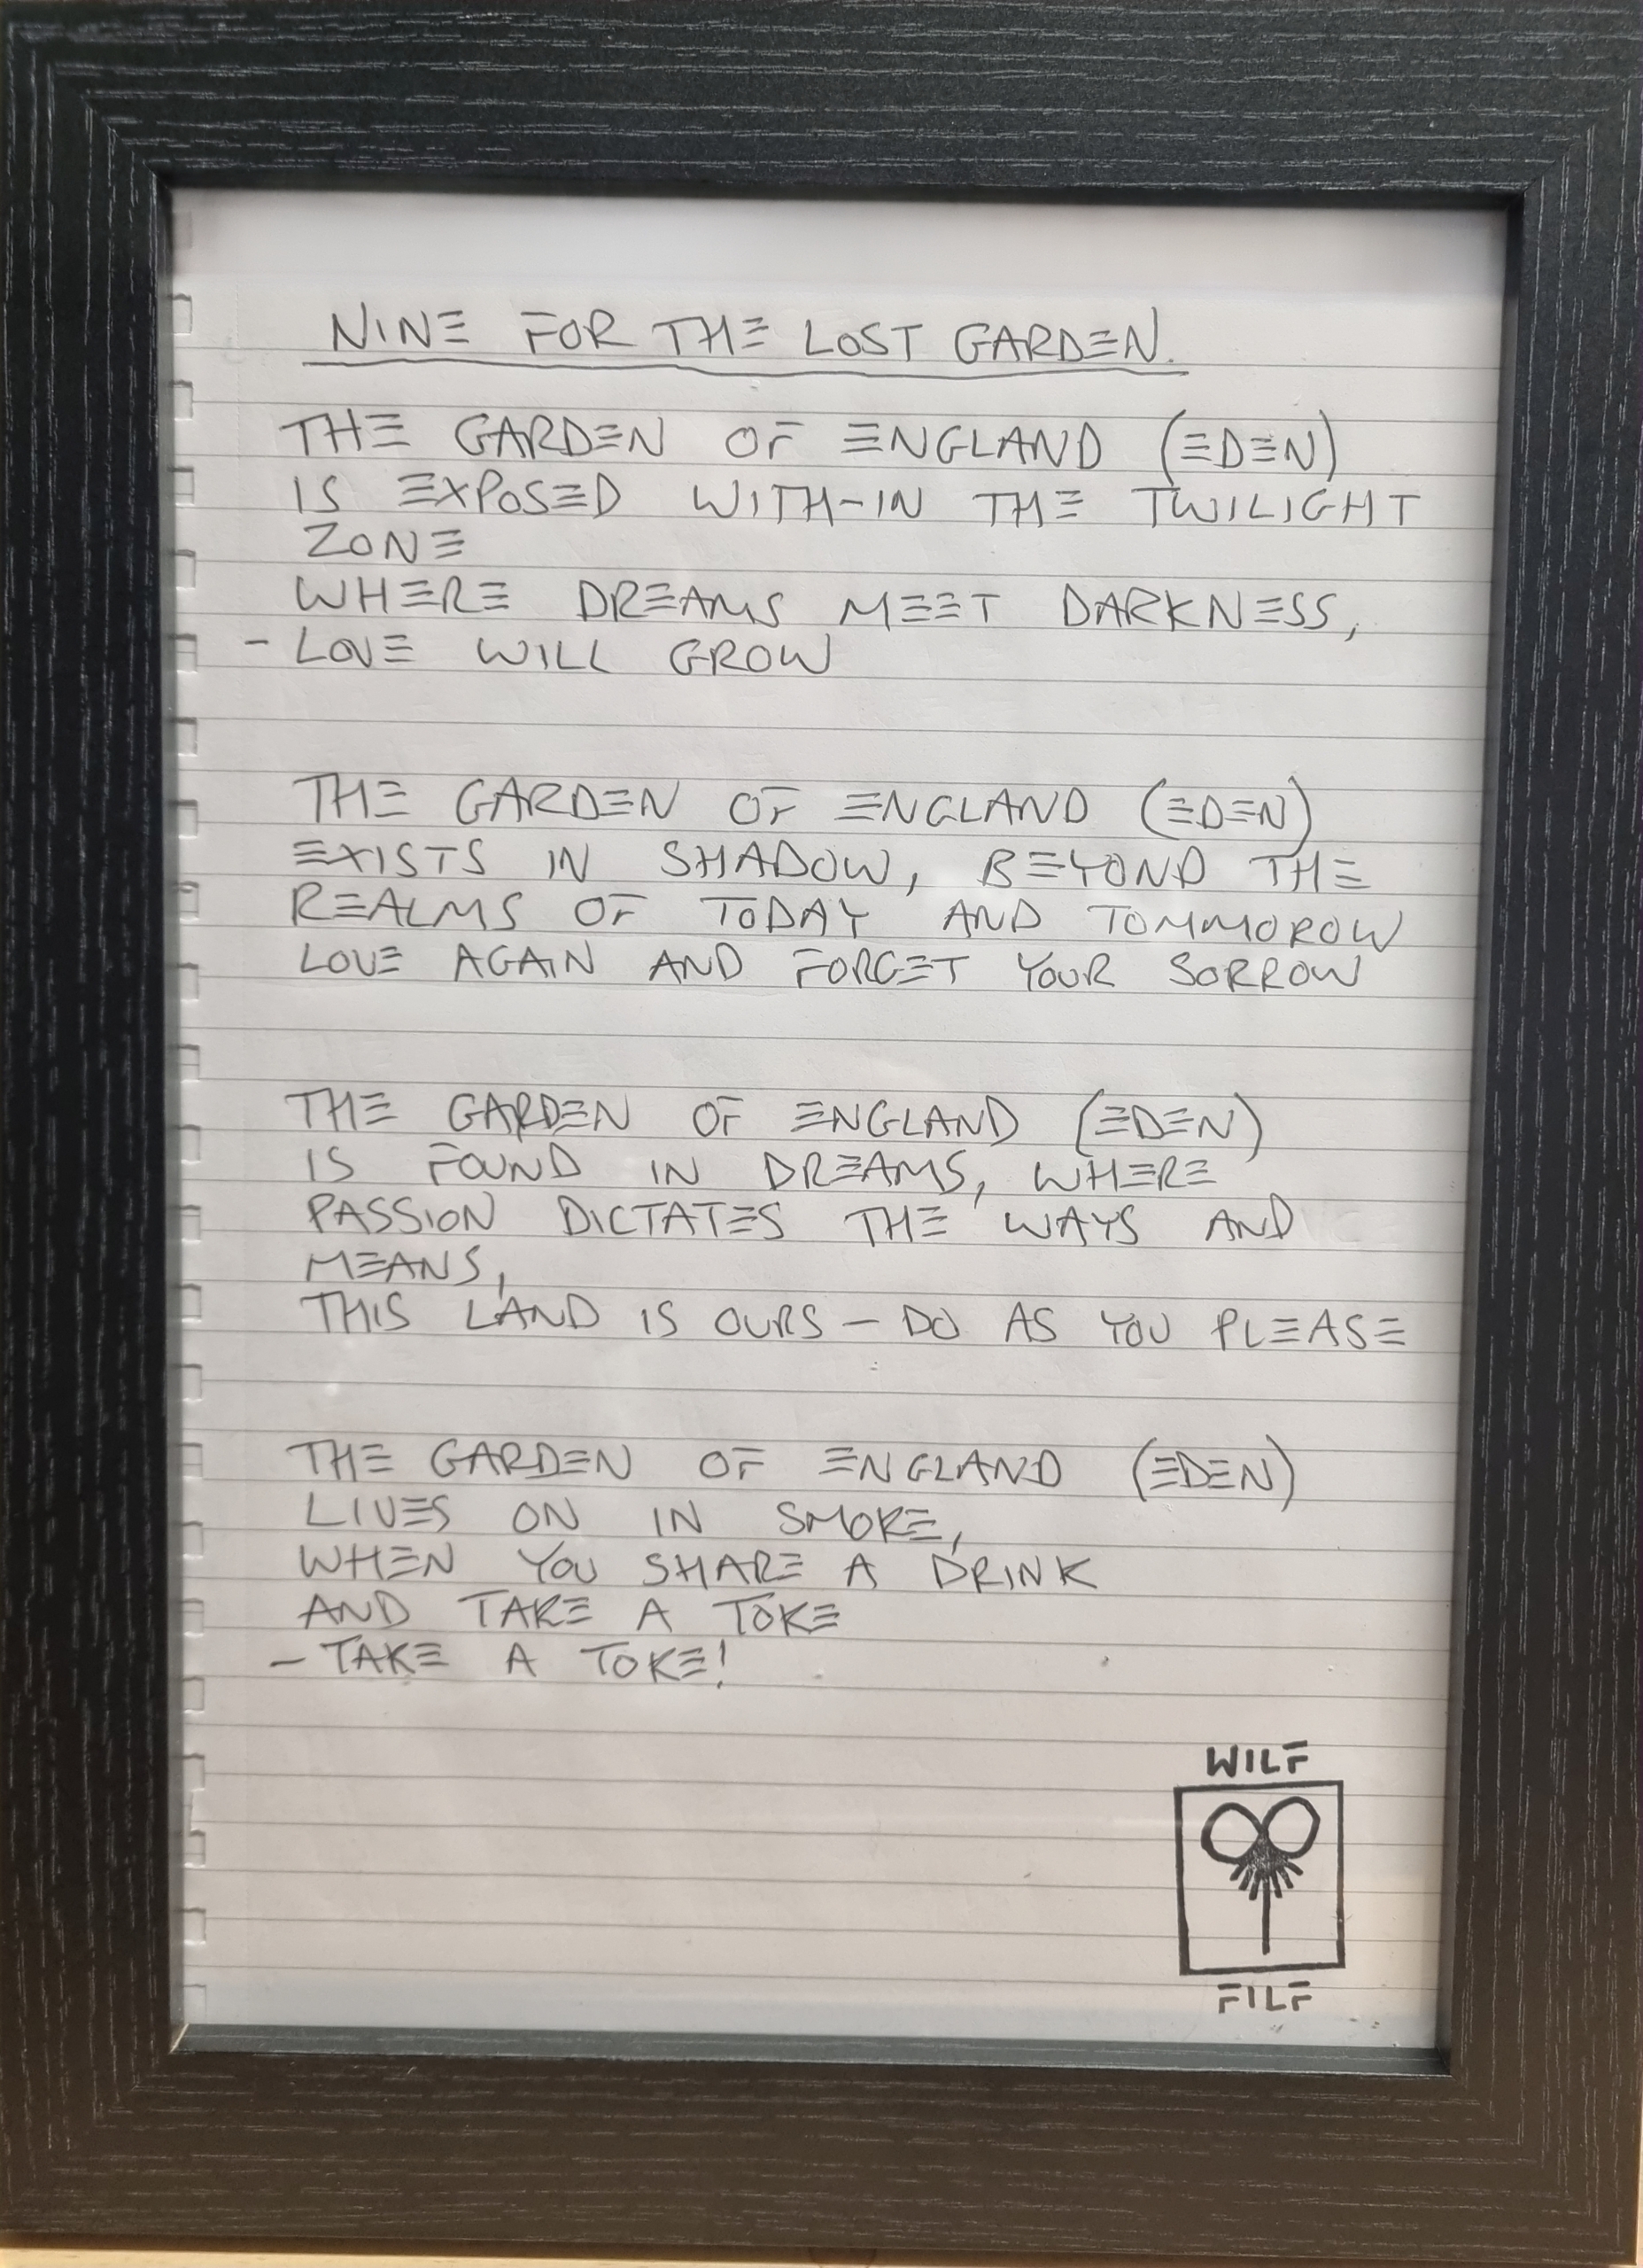 NINE FOR THE LOST GARDEN.
THE GARDEN OF ENGLAND (EDEN)
IS EXPOSED WITH-IN THE TWILIGHT
ZONE
WHERE DREAMS MEET DARKNESS,
- LOVE WILL GROW
THE GARDEN OF ENGLAND (EDEN)
EXISTS IN SHADOW, BEYOND THE
REALMS OF TODAY AND TOMMOROW
LOVE AGAIN AND FORGET YOUR SORROW
THE GARDEN OF ENGLAND (EDEN)
IS FOUND IN DREAMS, WHERE
PASSION DICTATES THE WAYS AND
MEANS,
THIS LAND IS OURS - DO AS YOU PLEASE
THE GARDEN OF ENGLAND (EDEN)
LIVES ON IN SMOKE,
WHEN YOU SHARE A DRINK
AND TAKE A TOKE
- TAKE A TOKE!
WILF
FILF